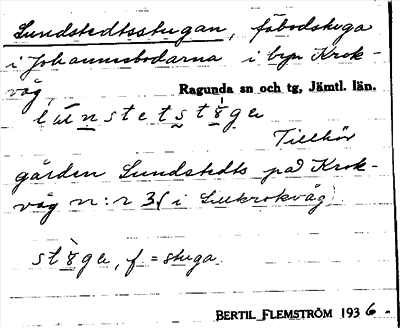 Lundstedtsstugan, fäbodstuga
i Johannesbodarna i byn Krok-
våg,
Ragunda sn och tg, Jämtl. län.
Tillhör
gården Lundstedts på Krok-
våg n:r 3 i Lillkrokvåg.
f = stuga.
BERTIL FLEMSTRÖM 1936.